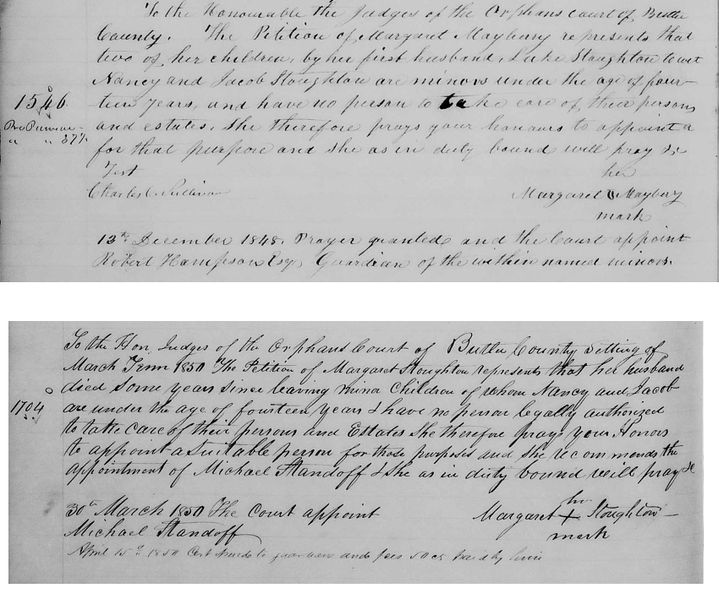 To the Honourable the Judges of the Orphans court of Butler
County. The Petition of Margaret Maybery represents that
two of her children, by her first husband, Luke Stoughton
Nancy and Jacob Stoughton are minors under the age of four-
teen years, and have no person to take care of their persons
and estates. She therefore prays your honours to appoint a
for that purpose and she as in duty bound will pray &c
1546
37½
Test
Charles C Sullivan
her
Margaret Maybery
mark
13th December 1848. Prayer granted and the Court appoint
Robert Hampson Esq. Guardian of the within named minors.
To the Hon. Judges of the Orphans Court of Butler County sitting of
March Term 1850 The Petition of Margaret Stoughton represents that her husband
died some years since leaving minor Children of whom Nancy and Jacob
are under the age of fourteen years & have no person legally authorized
to take care of their persons and Estates She therefore prays your Honors
to appoint a suitable person for those purposes and She recommends the
appointment of Michael Standoff & she as in duty bound will pray &c
1704
30th March 1850 The Court appoint
Michael Standoff
her
Margaret X Stoughton
mark
April 15th 1850 Cert and fees